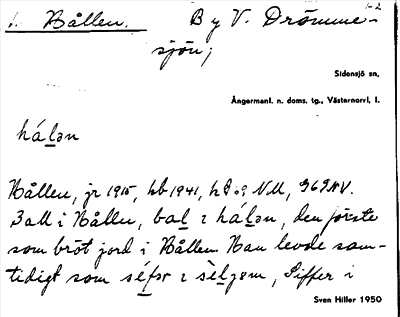 1. Hållen. By V. Drömme- 1-2
sjön;
Sidensjö sn,
Ångermanl. n. doms. tg., Västernorrl. l.
hálən
Hållen, jr 1915, hb 1941, NM, 969 AV.
Ball i Hållen, bal i hálən, den förste
som bröt jord i Hållen. Han levde sam-
tidigt som séfər i sèlgəm, Siffer i
Sven Hiller 1950